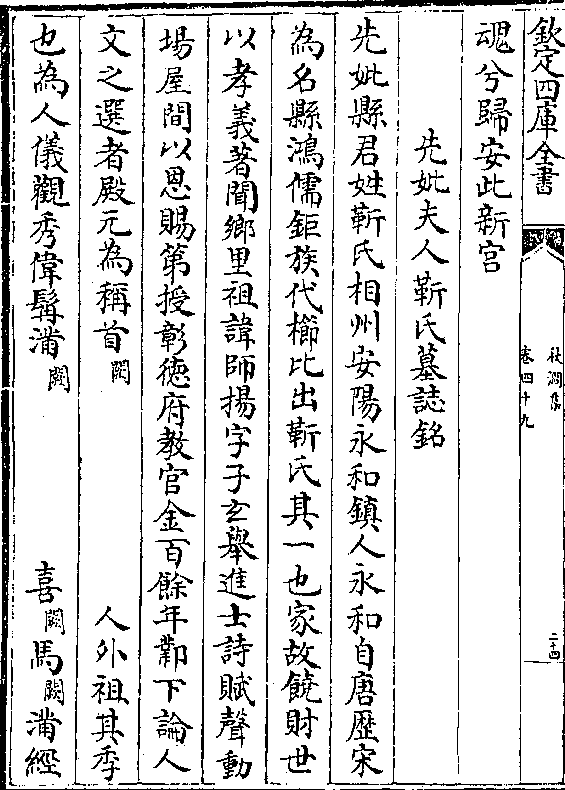 欽定四庫全書
秋澗集
卷四十九
二十四
魂兮歸安此新宫
先妣夫人靳氏墓誌銘
先妣縣君姓靳氏相州安陽永和鎮人永和自唐歴宋
為名縣鴻儒鉅族代櫛比出靳氏其一也家故饒財世
以孝義著聞鄉里祖諱師揚字子玄舉進士詩賦聲動
場屋間以恩賜第授彰徳府教官金百餘年鄴下論人
文之選者殿元為稱首闕 人外祖其季
也為人儀觀秀偉髯滿闕 喜闕馬闕滿經